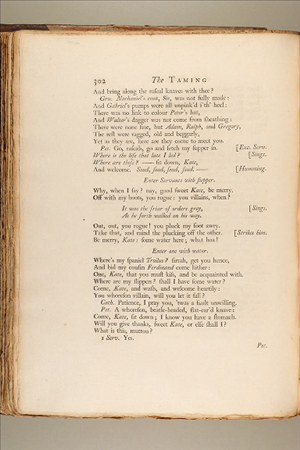 302 The TAMING
And bring along the rascal knaves with thee?
Gru. Nathaniel's coat, Sir, was not fully made:
And Gabriel's pumps were all unpink'd i'th' heel:
There was no link to colour Peter's hat,
And Walter's dagger was not come from sheathing:
There were none fine, but Adam, Ralph, and Gregory,
The rest were ragged, old and beggarly,
Yet as they are, here are they come to meet you.
Pet. Go, rascals, go and fetch my supper in. [Exe. Serv.
Where is the life that late I led? [Sings.
Where are those? —— sit down, Kate,
And welcome. Soud, soud, soud, soud. —— [Humming.
Enter Servants with supper.
Why, when I say? nay, good sweet Kate, be merry.
Off with my boots, you rogue: you villains, when?
It was the friar of orders grey, [Sings.
As he forth walked on his way.
Out, out, you rogue! you pluck my foot awry.
Take that, and mind the plucking off the other. [Strikes him.
Be merry, Kate: some water here; what hoa!
Enter one with water.
Where's my spaniel Troilus? sirrah, get you hence,
And bid my cousin Ferdinand come hither:
One, Kate, that you must kiss, and be acquainted with.
Where are my slippers? shall I have some water?
Come, Kate, and wash, and welcome heartily:
You whoreson villain, will you let it fall?
Cath. Patience, I pray you, 'twas a fault unwilling.
Pet. A whoreson, beetle-headed, flat-ear'd knave:
Come, Kate, sit down; I know you have a stomach.
Will you give thanks, sweet Kate, or else shall I?
What is this, mutton?
1 Serv. Yes.
Pet.